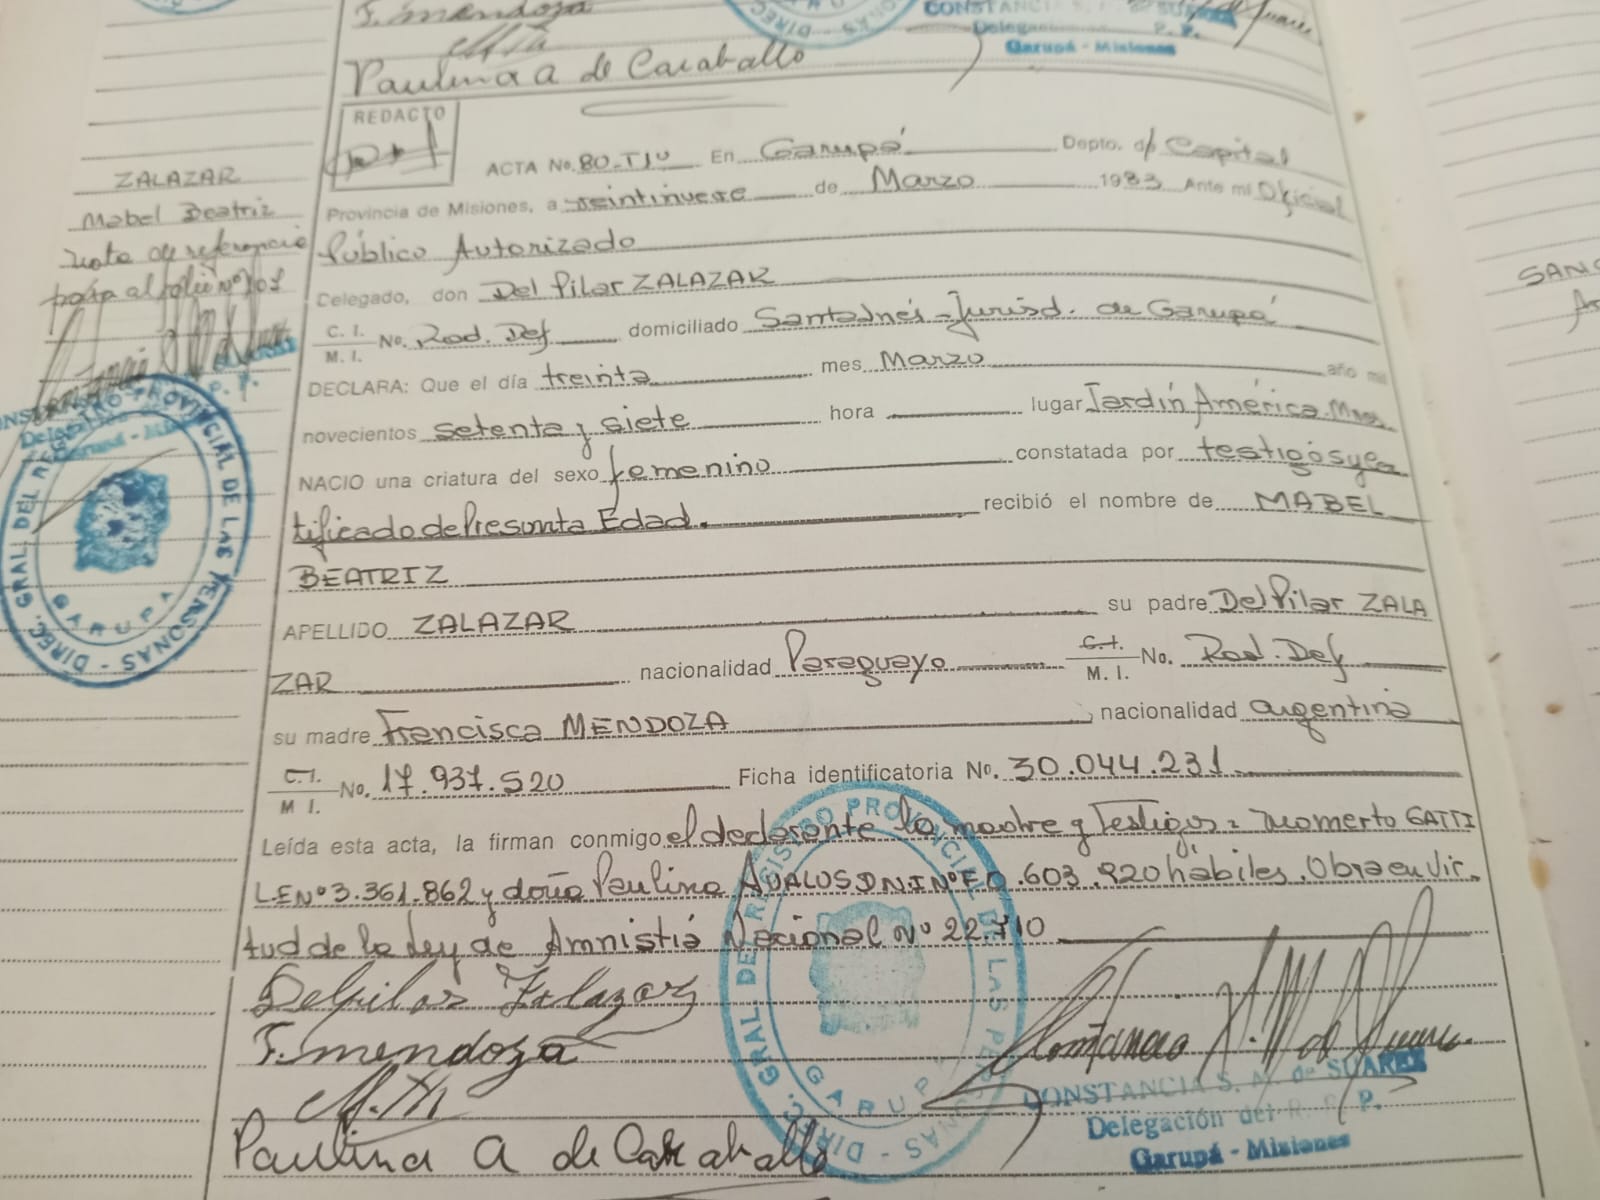 F. mendoza
CONSTANCIA S.
Garupá - Misiones
Paulina A de Caraballo
REDACTO
ACTA No. 80-T1º En Garupá Depto. d/ Capital
Provincia de Misiones, a veintinueve de Marzo 1983 Ante mí Oficial
Público Autorizado
Delegado, don Del Pilar ZALAZAR
C. I.
M. I. No. Rad. Def domiciliado Santa Inés - Jurisd. de Garupá
DECLARA: Que el día treinta mes Marzo año mil
novecientos setenta y siete hora lugar Jardín América. Mnes.
NACIO una criatura del sexo femenino constatada por testigos y cer
tificado de Presunta Edad. recibió el nombre de MABEL
BEATRIZ
APELLIDO ZALAZAR su padre Del Pilar ZALA
ZAR nacionalidad Paraguayo C.I.
M. I. No. Rad. Def
su madre Francisca MENDOZA nacionalidad argentina
C.I.
M I. No. 17.937.520 Ficha identificatoria No. 30.044.231
Leída esta acta, la firman conmigo el declarante la madre y Testigos: Numerto GATTI
LE Nº 3.361.862 y doña Paulina AVALOS DNI Nº F0.603.920 hábiles. Obra en vir
tud de la Ley de Amnistía Nacional Nº 22.710
Delpilar Zalazar
F. mendoza
Paulina A de Caraballo
CONSTANCIA S. M. de SUAREZ
Delegación del R. P. P.
Garupá - Misiones
DIREC. GRAL. DEL REGISTRO PROVINCIAL DE LAS PERSONAS
GARUPA
ZALAZAR
Mabel Beatriz
nota de referencia
pasa al folio nº 101
DIREC. GRAL. DEL REGISTRO PROVINCIAL DE LAS PERSONAS
GARUPA